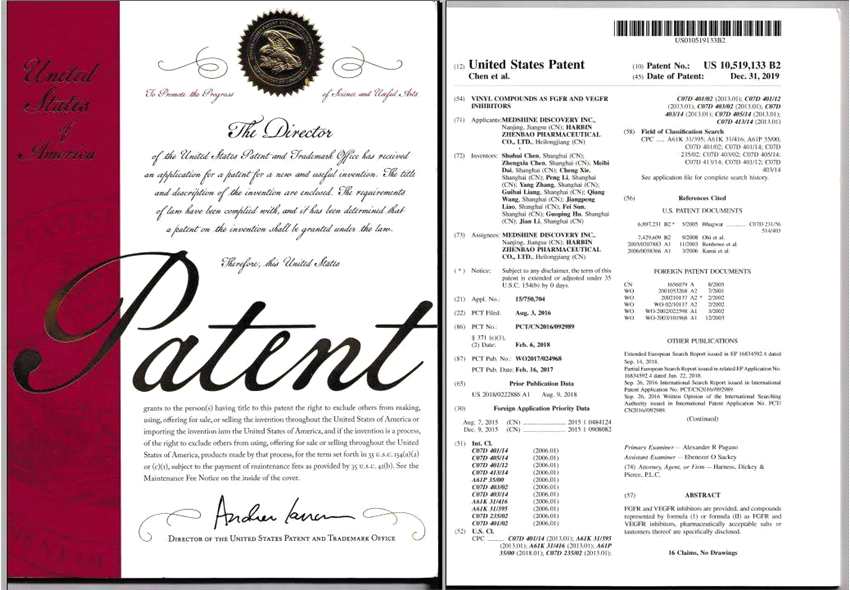 United
States
of
America
To Promote the Progress
of Science and Useful Arts
The Director
of the United States Patent and Trademark Office has received
an application for a patent for a new and useful invention. The title
and description of the invention are enclosed. The requirements
of law have been complied with, and it has been determined that
a patent on the invention shall be granted under the law.
Therefore, this United States
Patent
grants to the person(s) having title to this patent the right to exclude others from making,
using, offering for sale, or selling the invention throughout the United States of America or
importing the invention into the United States of America, and if the invention is a process,
of the right to exclude others from using, offering for sale or selling throughout the United
States of America, products made by that process, for the term set forth in 35 U.S.C. 154(a)(2)
or (c)(1), subject to the payment of maintenance fees as provided by 35 U.S.C. 41(b). See the
Maintenance Fee Notice on the inside of the cover.
DIRECTOR OF THE UNITED STATES PATENT AND TRADEMARK OFFICE
US010519133B2
(12) United States Patent
Chen et al.
(10) Patent No.: US 10,519,133 B2
(45) Date of Patent: Dec. 31, 2019
(54) VINYL COMPOUNDS AS FGFR AND VEGFR
INHIBITORS
(71) Applicants: MEDSHINE DISCOVERY INC.,
Nanjing, Jiangsu (CN); HARBIN
ZHENBAO PHARMACEUTICAL
CO., LTD., Heilongjiang (CN)
(72) Inventors: Shuhui Chen, Shanghai (CN);
Zhengxia Chen, Shanghai (CN); Meibi
Dai, Shanghai (CN); Cheng Xie,
Shanghai (CN); Peng Li, Shanghai
(CN); Yang Zhang, Shanghai (CN);
Guibai Liang, Shanghai (CN); Qiang
Wang, Shanghai (CN); Jiangpeng
Liao, Shanghai (CN); Fei Sun,
Shanghai (CN); Guoping Hu, Shanghai
(CN); Jian Li, Shanghai (CN)
(73) Assignees: MEDSHINE DISCOVERY INC.,
Nanjing, Jiangsu (CN); HARBIN
ZHENBAO PHARMACEUTICAL
CO., LTD., Heilongjiang (CN)
( * ) Notice: Subject to any disclaimer, the term of this
patent is extended or adjusted under 35
U.S.C. 154(b) by 0 days.
(21) Appl. No.: 15/750,704
(22) PCT Filed: Aug. 3, 2016
(86) PCT No.: PCT/CN2016/092989
§ 371 (c)(1),
(2) Date: Feb. 6, 2018
(87) PCT Pub. No.: WO2017/024968
PCT Pub. Date: Feb. 16, 2017
(65) Prior Publication Data
US 2018/0222886 A1 Aug. 9, 2018
(30) Foreign Application Priority Data
Aug. 7, 2015 (CN) 2015 1 0484124
Dec. 9, 2015 (CN) 2015 1 0908082
(51) Int. Cl.
C07D 401/14 (2006.01)
C07D 405/14 (2006.01)
C07D 401/12 (2006.01)
C07D 413/14 (2006.01)
A61P 35/00 (2006.01)
C07D 403/02 (2006.01)
C07D 403/14 (2006.01)
A61K 31/416 (2006.01)
A61K 31/395 (2006.01)
C07D 235/02 (2006.01)
C07D 401/02 (2006.01)
(52) U.S. Cl.
CPC C07D 401/14 (2013.01); A61K 31/395
(2013.01); A61K 31/416 (2013.01); A61P
35/00 (2018.01); C07D 235/02 (2013.01);
C07D 401/02 (2013.01); C07D 401/12
(2013.01); C07D 403/02 (2013.01); C07D
403/14 (2013.01); C07D 405/14 (2013.01);
C07D 413/14 (2013.01)
(58) Field of Classification Search
CPC A61K 31/395; A61K 31/416; A61P 35/00;
C07D 401/02; C07D 401/14; C07D
235/02; C07D 403/02; C07D 405/14;
C07D 413/14; C07D 401/12; C07D
403/14
See application file for complete search history.
(56) References Cited
U.S. PATENT DOCUMENTS
6,897,231 B2 * 5/2005 Bhagwat C07D 231/56
514/403
7,429,609 B2 9/2008 Ohi et al.
2003/0207883 A1 11/2003 Renhowe et al.
2006/0058366 A1 3/2006 Kanai et al.
FOREIGN PATENT DOCUMENTS
CN 1656079 A 8/2005
WO 2001053268 A2 7/2001
WO 200210137 A2 * 2/2002
WO WO-02/10137 A2 2/2002
WO WO-2002/022598 A1 3/2002
WO WO-2003/101968 A1 12/2003
OTHER PUBLICATIONS
Extended European Search Report issued in EP 16834592.4 dated
Sep. 14, 2018.
Partial European Search Report issued in related EP Application No.
16834592.4 dated Jun. 22, 2018.
Sep. 26, 2016 International Search Report issued in International
Patent Application No. PCT/CN2016/092989.
Sep. 26, 2016 Written Opinion of the International Searching
Authority issued in International Patent Application No. PCT/
CN2016/092989.
(Continued)
Primary Examiner — Alexander R Pagano
Assistant Examiner — Ebenezer O Sackey
(74) Attorney, Agent, or Firm — Harness, Dickey &
Pierce, P.L.C.
(57) ABSTRACT
FGFR and VEGFR inhibitors are provided, and compounds
represented by formula (I) or formula (II) as FGFR and
VEGFR inhibitors, pharmaceutically acceptable salts or
tautomers thereof are specifically disclosed.
16 Claims, No Drawings